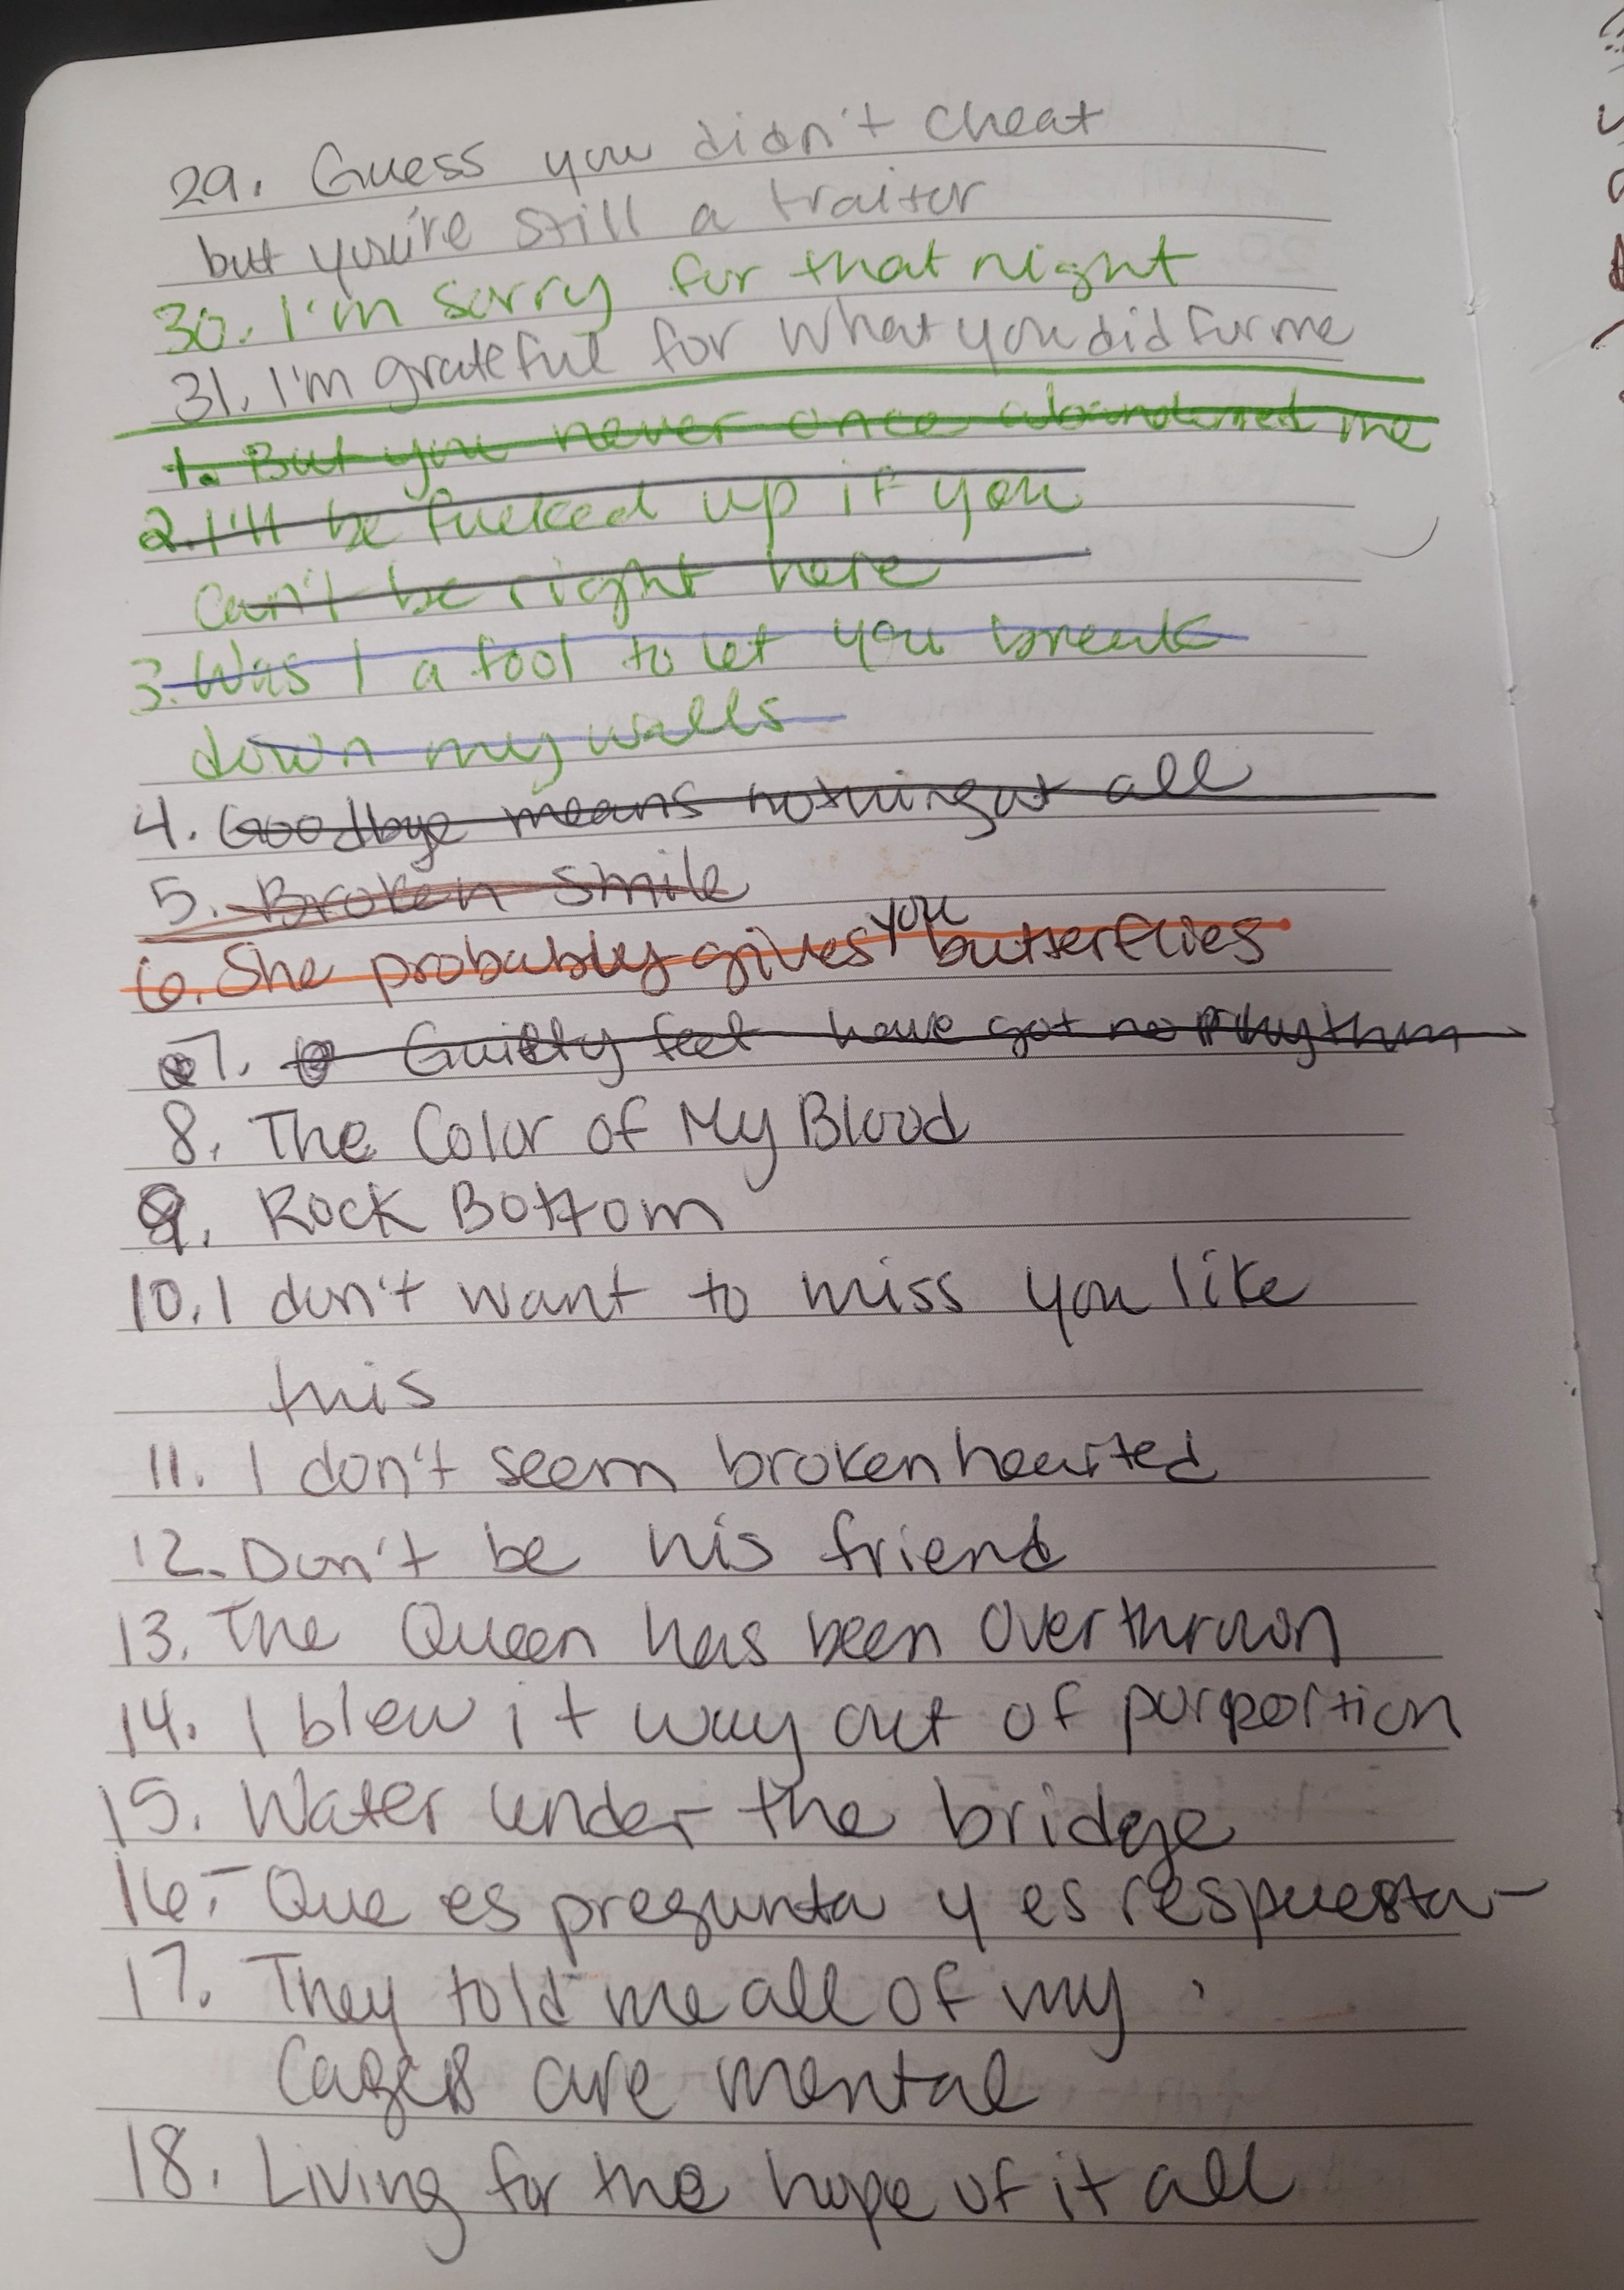 29. Guess you didn't cheat
but you're still a traitor
30. I'm sorry for that night
31. I'm grateful for what you did for me
1. But you never once abandoned me
2. I'll be fucked up if you
can't be right here
3. Was I a fool to let you break
down my walls
4. Goodbye means nothing at all
5. Broken smile
6. She probably gives you butterflies
7. Guilty feet have got no rhythm
8. The Color of My Blood
9. Rock Bottom
10. I don't want to miss you like
this
11. I don't seem brokenhearted
12. Don't be his friend
13. The Queen has been overthrown
14. I blew it way out of porportion
15. Water under the bridge
16. - Que es pregunta y es respuesta -
17. They told me all of my
cages are mental
18. Living for the hope of it all